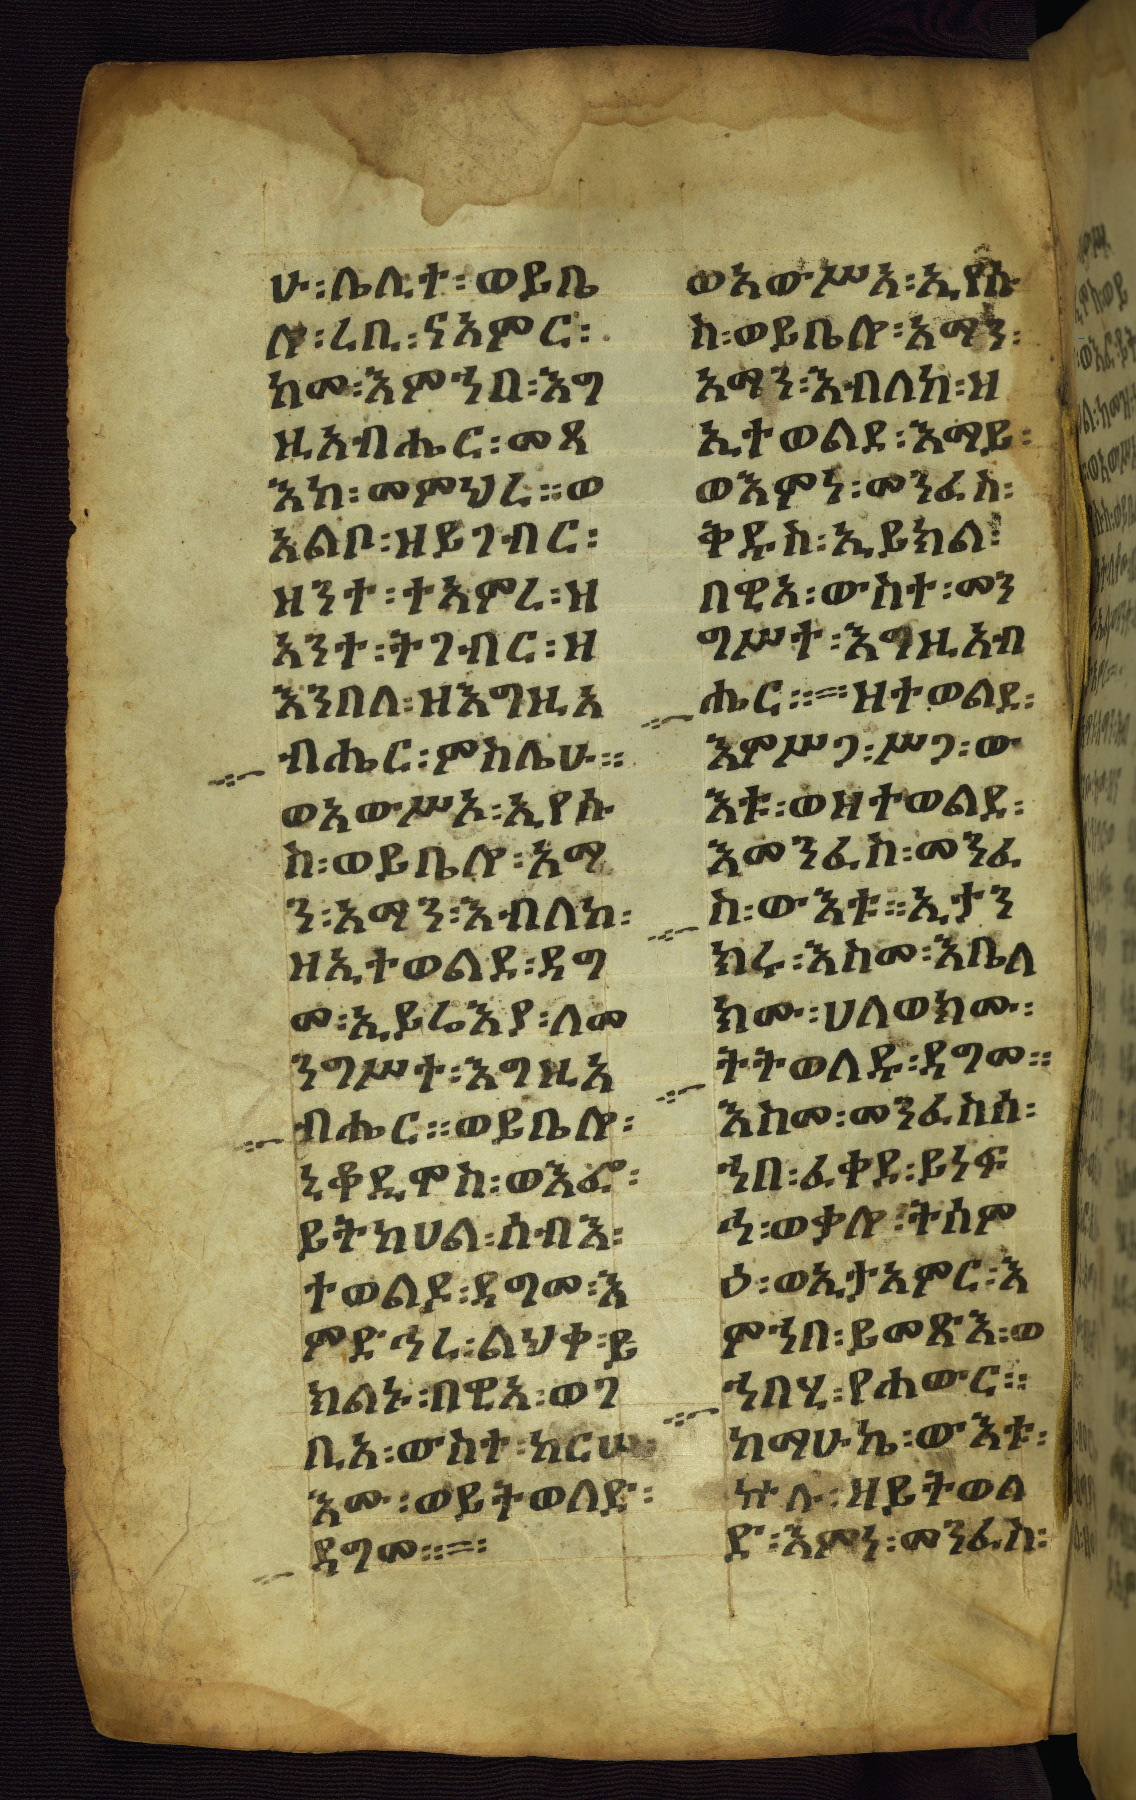 ሁ፡ሌሊተ፡ወይቤ
ሎ፡ረቢ፡ናአምር፡
ከመ፡እምኀበ፡እግ
ዚአብሔር፡መጻ
እከ፡መምህረ፡፡ወ
አልቦ፡ዘይገብር፡
ዘንተ፡ተአምረ፡ዘ
አንተ፡ትገብር፡ዘ
እንበለ፡ዘእግዚአ
ብሔር፡ምስሌሁ፡፡
ወአውሥአ፡ኢየሱ
ስ፡ወይቤሎ፡አማ
ን፡አማን፡እብለከ፡
ዘኢተወልደ፡ዳግ
መ፡ኢይሬእያ፡ለመ
ንግሥተ፡እግዚአ
ብሔር፡፡ወይቤሎ፡
ኒቆዲሞስ፡ወእፎ፡
ይትከሀል፡ስብእ፡
ተወልዶ፡ዳግመ፡እ
ምድኅረ፡ልህቀ፡ይ
ክልኑ፡በዊአ፡ወገ
ቢአ፡ውስተ፡ከርሠ፡
እሙ፡ወይትወለድ፡
ዳግመ፡፡=፡
ወአውሥአ፡ኢየሱ
ስ፡ወይቤሎ፡አማን፡
አማን፡እብለከ፡ዘ
ኢተወልደ፡እማይ፡
ወእምነ፡መንፈስ፡
ቅዱስ፡ኢይክል፡
በዊአ፡ውስተ፡መን
ግሥተ፡እግዚአብ
ሔር፡፡=፡ዘተወልደ፡
እምሥጋ፡ሥጋ፡ው
እቱ፡ወዘተወልደ፡
እመንፈስ፡መንፈ
ስ፡ውእቱ፡፡ኢታን
ክሩ፡እስመ፡እቤለ
ክሙ፡ሀለወክሙ፡
ትትወለዱ፡ዳግመ፡፡
እስመ፡መንፈስሰ፡
ኀበ፡ፈቀደ፡ይነፍ
ኅ፡ወቃሎ፡ትሰም
ዕ፡ወኢታአምር፡እ
ምኀበ፡ይመጽእ፡ወ
ኀበሂ፡የሐውር፡፡
ከማሁኬ፡ውእቱ፡
ኵሉ፡ዘይትወለ
ድ፡እምነ፡መንፈስ፡